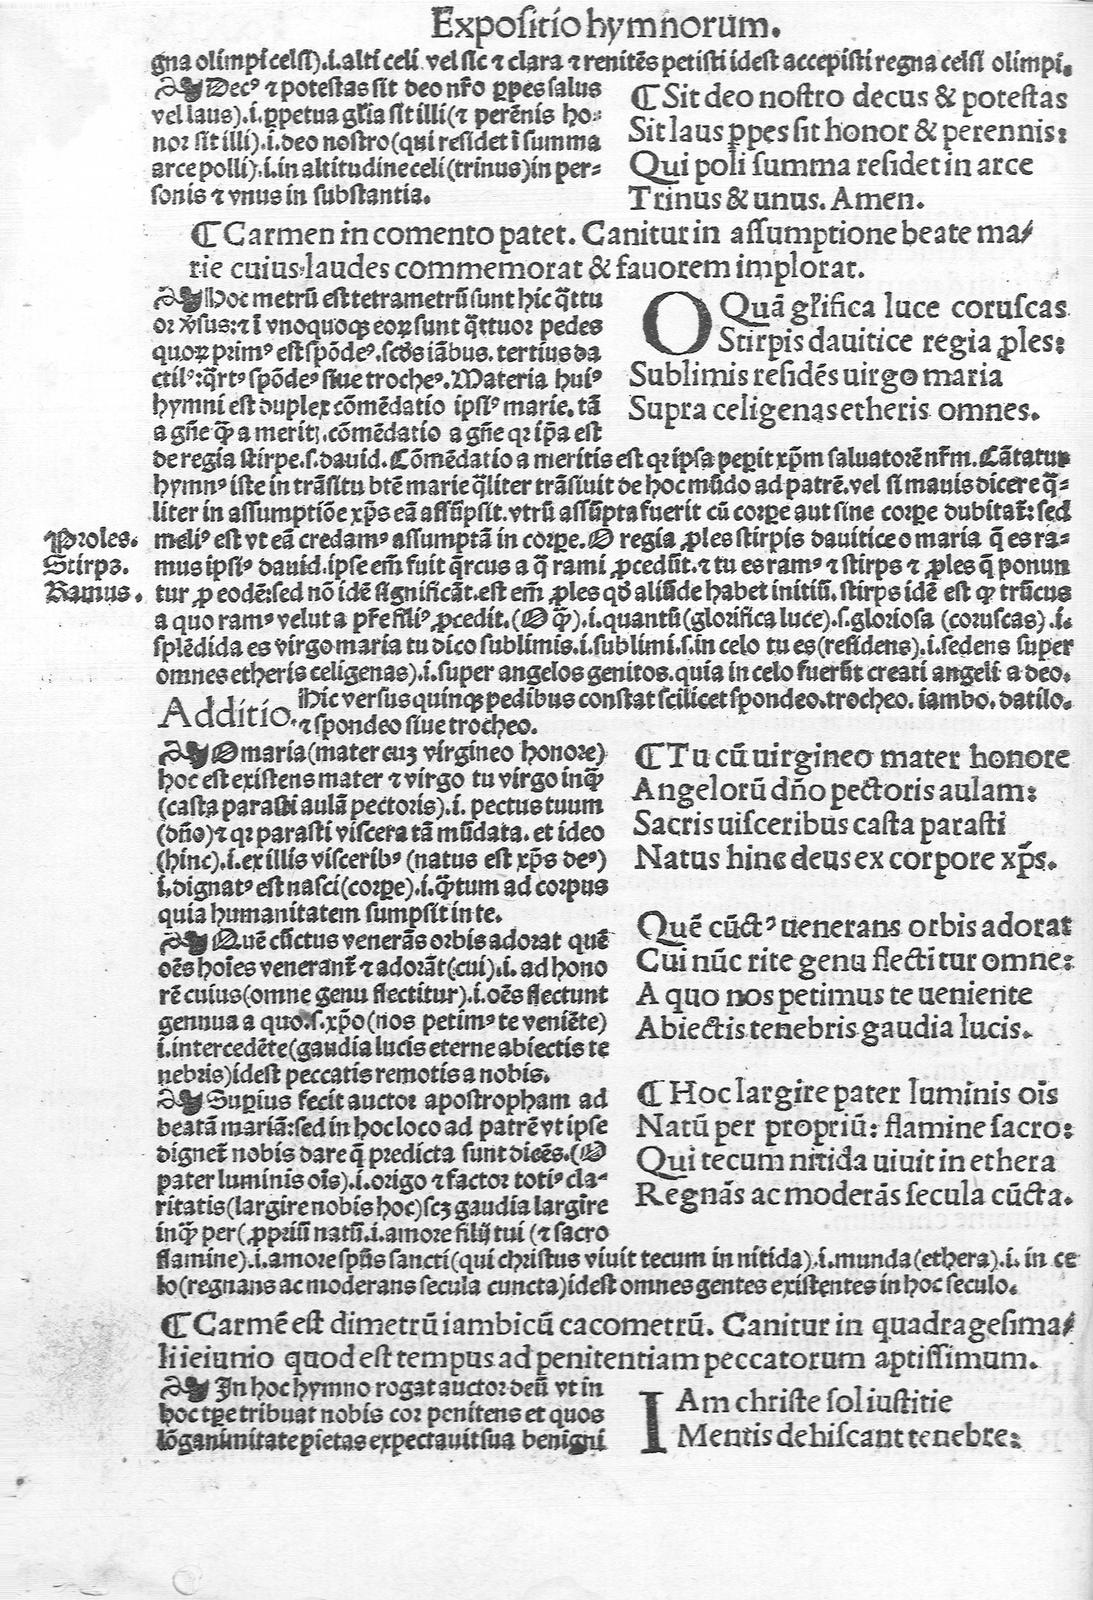 Expositio hymnorum.
gna olimpi celsi).i.alti celi vel sic ⁊ clara ⁊ renitēs petisti idest accepisti regna celsi olimpi.
Decꝰ ⁊ potestas sit deo nr̄o ꝑpes salus
vel laus).i.ꝑpetua gl̄ia sit illi(⁊ perēnis ho-
nor sit illi).i.deo nostro(qui residet ī summa
arce polli).i.in altitudine celi(trinus)in per-
sonis ⁊ vnus in substantia.
¶ Sit deo nostro decus & potestas
Sit laus ꝑpes sit honor & perennis:
Qui poli summa residet in arce
Trinus & unus. Amen.
¶ Carmen in comento patet. Canitur in assumptione beate ma/
rie cuius laudes commemorat & fauorem implorat.
Hoc metrū est tetrametrū sunt hic q̄ttu
or v̄sus:⁊ ī vnoquoqꝫ eoꝝ sunt q̄ttuor pedes
quoꝝ primꝰ est spōdeꝰ.scd̄s iābus.tertius da
ctilꝰ:q̄rtꝰ spōdeꝰ siue trocheꝰ.Materia huiꝰ
hymni est duplex cōmēdatio ipsiꝰ marie.tā
a gn̄e q̄ꝫ a meritꝭ.cōmēdatio a gn̄e qꝛ ip̄a est
O Quā gl̄rifica luce coruscas
Stirpis dauitice regia ꝓles:
Sublimis residēs uirgo maria
Supra celigenas etheris omnes.
de regia stirpe.s.dauid.Cōmēdatio a meritis est qꝛ ipsa peꝑit xp̄m saluatorē nr̄m.Cātatur
hymnꝰ iste in trāsitu btē marie q̄liter trāsiuit de hoc mūdo ad patrē.vel si mauis dicere q̄-
liter in assumptiōe xp̄s eā assūpsit.vtrū assūpta fuerit cū corꝑe aut sine corꝑe dubitat̄:sed
meliꝰ est vt eā credamꝰ assumptā in corꝑe.O regia ꝓles stirpis dauitice o maria q̄ es ra-
mus ipsiꝰ dauid.ipse em̄ fuit q̄rcus a q̄ rami ꝓcedūt.⁊ tu es ramꝰ ⁊ stirps ⁊ ꝓles q̄ ponun
tur ꝓ eodē:sed nō idē significāt.est em̄ ꝓles qd̄ aliūde habet initiū.stirps idē est qꝫ trūcus
a quo ramꝰ velut a pr̄e filiꝰ ꝓcedit.(O q̄ꝫ).i.quantū(glorifica luce).s.gloriosa (coruscas).i.
splēdida es virgo maria tu dico sublimis.i.sublimi.s.in celo tu es(residens).i.sedens super
omnes etheris celigenas).i.super angelos genitos.quia in celo fuerūt creati angeli a deo.
Proles.
Stirps.
Ramus.
Additio. Hic versus quinqꝫ pedibus constat scilicet spondeo.trocheo. iambo. datilo.
⁊ spondeo siue trocheo.
O maria(mater cuꝫ virgineo honore)
hoc est existens mater ⁊ virgo tu virgo inq̄ꝫ
(casta parasti aulā pectoris).i. pectus tuum
(dn̄o)⁊ qꝛ parasti viscera tā mūdata. et ideo
(hinc).i.ex illis visceribꝰ (natus est xp̄s deꝰ)
i.dignatꝰ est nasci(corꝑe).i.q̄ꝫtum ad corpus
quia humanitatem sumpsit in te.
¶ Tu cū uirgineo mater honore
Angelorū dn̄o pectoris aulam:
Sacris uisceribus casta parasti
Natus hinc deus ex corpore xp̄s.
Quē cūctus venerās orbis adorat quē
oēs hoīes venerant̄ ⁊ adorāt(cui).i. ad hono
rē cuius(omne genu flectitur).i.oēs flectunt
gennua a quo.s.xp̄o(nos petimꝰ te veniēte)
i.intercedēte(gaudia lucis eterne abiectis te
nebris)idest peccatis remotis a nobis.
Quē cūctꝰ uenerans orbis adorat
Cui nūc rite genu flectitur omne:
A quo nos petimus te ueniente
Abiectis tenebris gaudia lucis.
Suꝑius fecit auctor apostropham ad
beatā mariā:sed in hoc loco ad patrē vt ipse
dignet̄ nobis dare q̄ predicta sunt dicēs.(O
pater luminis oīs).i.origo ⁊ factor totiꝰ cla-
ritatis(largire nobis hoc)scꝫ gaudia largire
inq̄ꝫ per(ꝓpriū natū.i.amore filij tui (⁊ sacro
¶ Hoc largire pater luminis oīs
Natū per propriū: flamine sacro:
Qui tecum nitida uiuit in ethera
Regnās ac moderās secula cūcta.
flamine).i.amore spūs sancti(qui christus viuit tecum in nitida).i.munda(ethera).i. in ce
lo(regnans ac moderans secula cuncta)idest omnes gentes existentes in hoc seculo.
¶ Carmē est dimetrū iambicū cacometrū. Canitur in quadragesima/
li ieiunio quod est tempus ad penitentiam peccatorum aptissimum.
In hoc hymno rogat auctor deū vt in
hoc tꝑe tribuat nobis cor penitens et quos
lōganimitate pietas expectauit sua benigni
IAm christe sol iustitie
Mentis dehiscant tenebre: